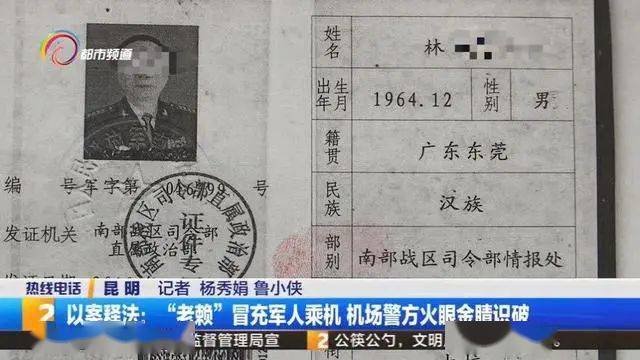 都市频道
姓名
林
出生年月
1964.12
性别
男
籍贯
广东东莞
民族
汉族
部别
南部战区司令部情报处
编 号 军字第 016799 号
发证机关
南部战区司令部
直属政治部
南部战区司令部直属政治部
证件专
热线电话 昆明 记者 杨秀娟 鲁小侠
2 以案释法：“老赖”冒充军人乘机 机场警方火眼金睛识破
监督管理局宣
2 公筷公勺，文明